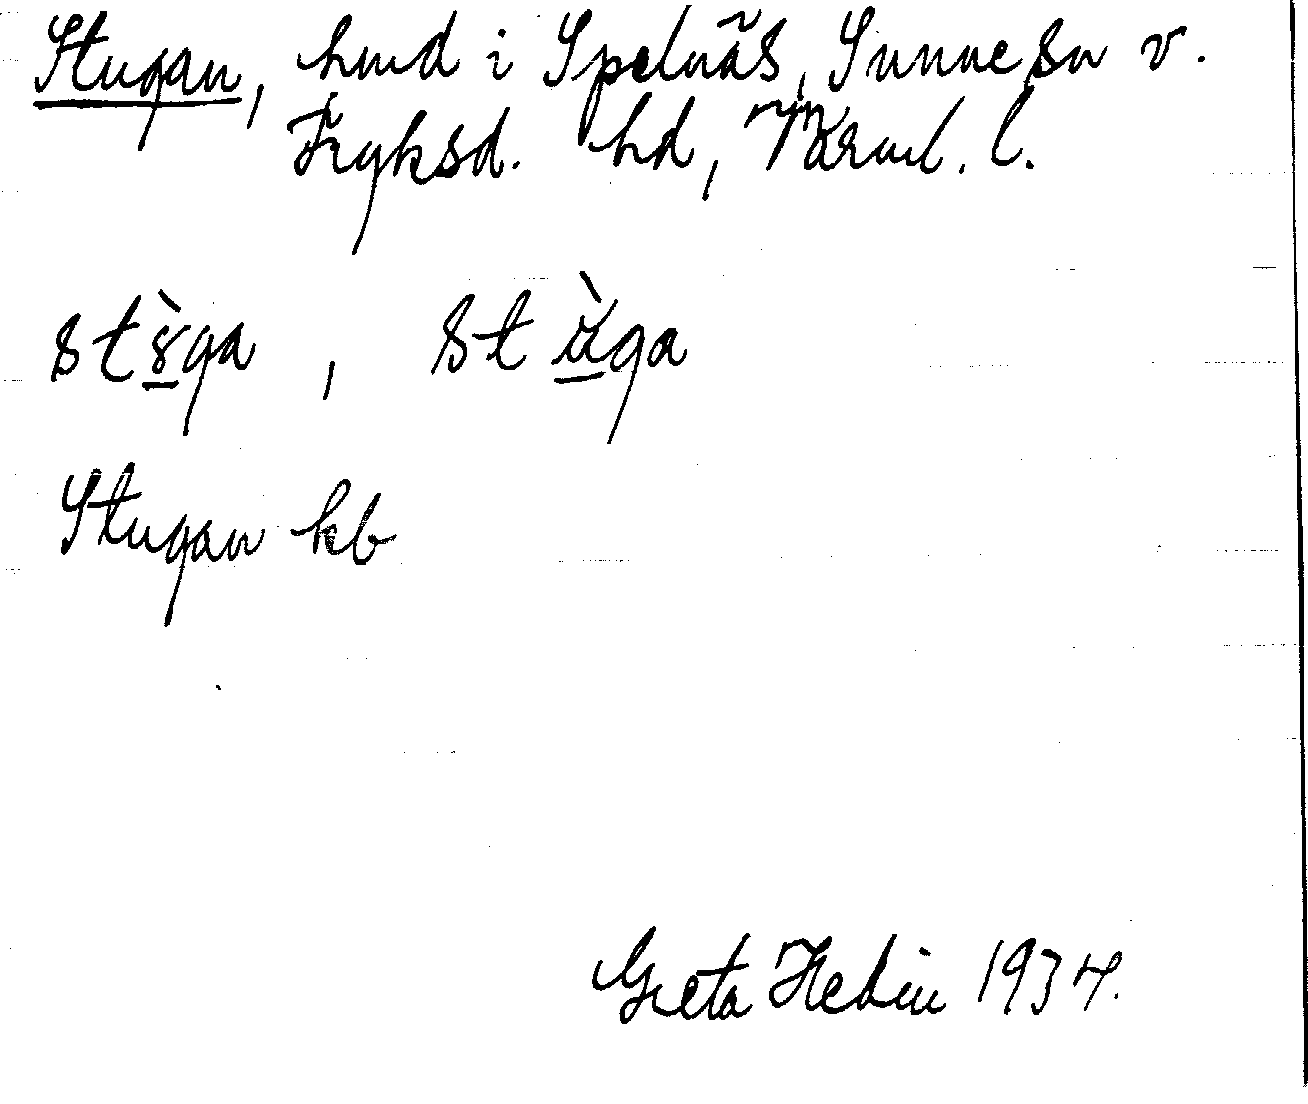 Stugan, hmd i Spelnäs, Sunne sn v.
Fryksd. hd, Värml. l.
stɤ̀ga, stùga
Stugan kb
Greta Hedin 1934.